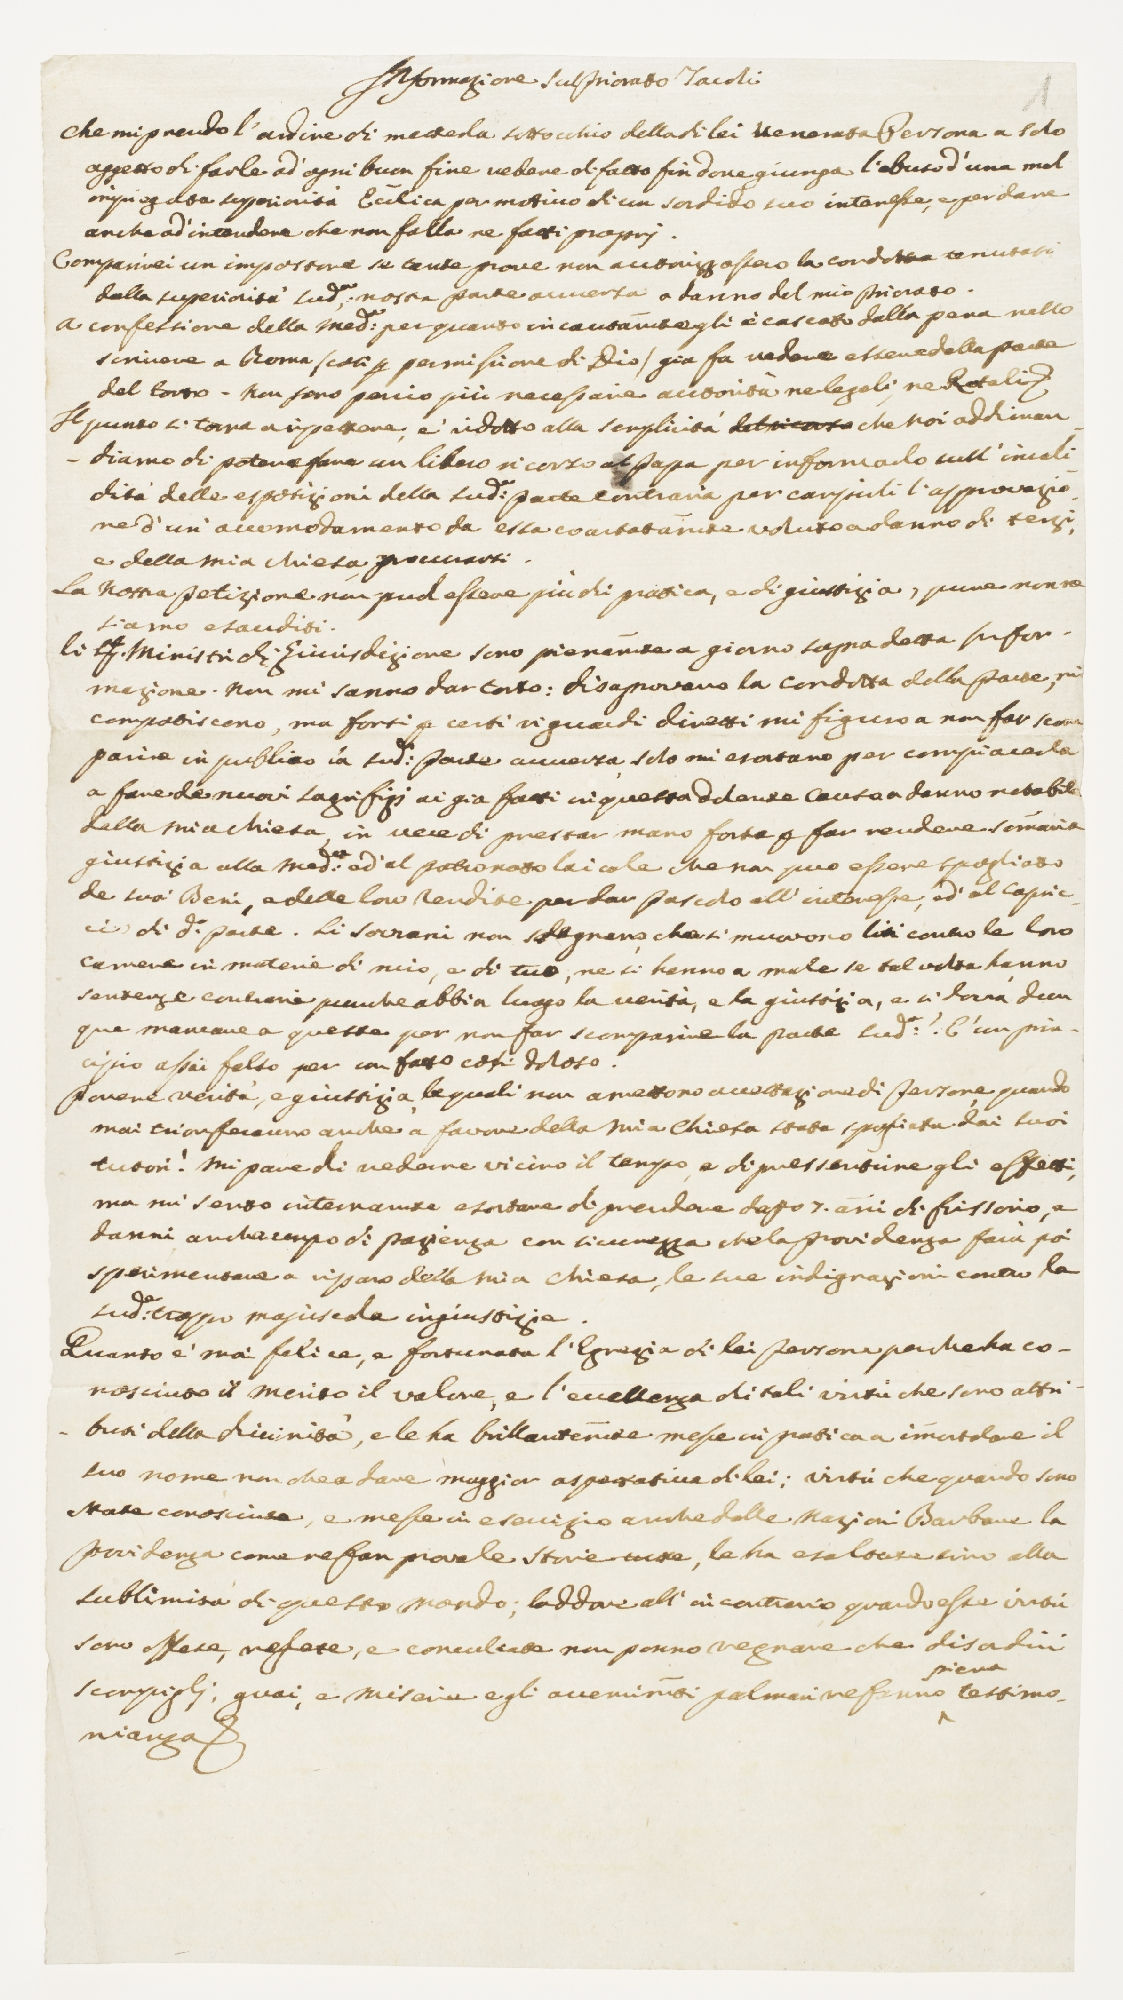 Informazione sul Priorato Tacoli
1
Che mi prendo l'ardire di metterla sotto ochio della di lei Venerata Persona a solo
oggetto di farle ad' ogni buon fine vedere di fatto fin dove giunga l'abuso d'una mal
impiegata superiorità Eccl̄ica per motivo di un sordido suo interesse, e per dare
anche ad' intendere che non falla ne fatti proprj.
Comparirei un impostore se tante prove non autorizzassero la condotta tenutasi
dalla superiorità sud.ª, nostra parte avversa a danno del mio Priorato.
A confessione della med.ª: per quanto incautam̄te gli è cascato dalla pena nello
scrivere a Roma /così p permissione di Dio/ già fa vedere essere della parte
del torto - Non sono perciò più necessarie autorità ne legali, ne Rotali
Il punto si torna a ripettere, e' ridotto alla semplicità del ricorso che noi addiman
diamo di potere fare un libero ricorso al Papa per informarlo sull' invali
dità delle esposizioni della sud.ª: parte contraria per carpirli l'approvazio
ne d'un' accomodamento da essa coartatam̄te voluto a danno di terzi,
e della mia chiesa
La nostra petizione non può essere più di pratica, e di giustizia, pure non ne
siamo esauditi.
li Sig. Ministri di Giurisdizione sono pienam̄te a giorno sopra detta Infor-
mazione. Non mi sanno dar torto: disaprovano la condotta della Parte, mi
compatiscono, ma forsi p certi riguardi diretti mi figuro a non far scom
parire in publico la sud.ª: Parte avversa, solo mi esortano per compiacerla
a fare de nuovi sagrifizj ai già fatti in questa dolente Causa a danno notabile
della mia chiesa, in vece di prestar mano forte p far rendere som̄aria
giustizia alla med.ª: ed' al patronato laicale che non può essere spogliato
de suoi Beni, e delle loro rendite per dar pascolo all' interesse, ed' al capric-
cio di d.ª parte. Li Sovrani non sdegnano che si muovono liti contro le loro
camere in materie di mio, e di tuo, ne si hanno a male se tal volta hanno
sentenze contrarie purche abbia luogo la verità, e la giustizia, e si dovrà dun
que mancare a queste per non far scomparire la parte sud.ª:! E' un prin-
cipio assai falso per un fatto così doloso.
Povere verità, e giustizia, le quali non amettono accettazione di persone, quando
mai trionferanno anche a favore della mia Chiesa stata spogliata dai suoi
tutori! Mi pare di vederne vicino il tempo, e di pressentirne gli effetti,
ma mi sento internam̄te esortare di prendere doppo 7. an̄i di frissorio, e
danni anche un po di pazienza con sicurezza che la providenza farà poi
sperimentare a riparo della mia chiesa, le sue indignazioni contro la
sud.ª: troppo majuscola ingiustizia.
Quanto e' mai felice, e fortunata l'Egregia di lei Persona perche ha co-
nosciuto il merito il valore, e l'eccellenza di tali virtù che sono attri-
- buti della divinità, e le ha brillantem̄te messe in pratica a im̄ortalare il
suo nome non che a dare maggior aspettativa di lei; virtù che quando sono
state conosciute, e messe in esercizio anche dalle Nazioni Barbare la
providenza come ne fan prova le storie tutte, le ha esaltate sino alla
sublimità di questo mondo; laddove all' incontrario quando esse virtù
sono offese, neglette, e conculcate non ponno regnare che disordini
scompiglj, guai, e miserie e gli avvenim̄ti palmari ne fanno piena testimo-
nianza